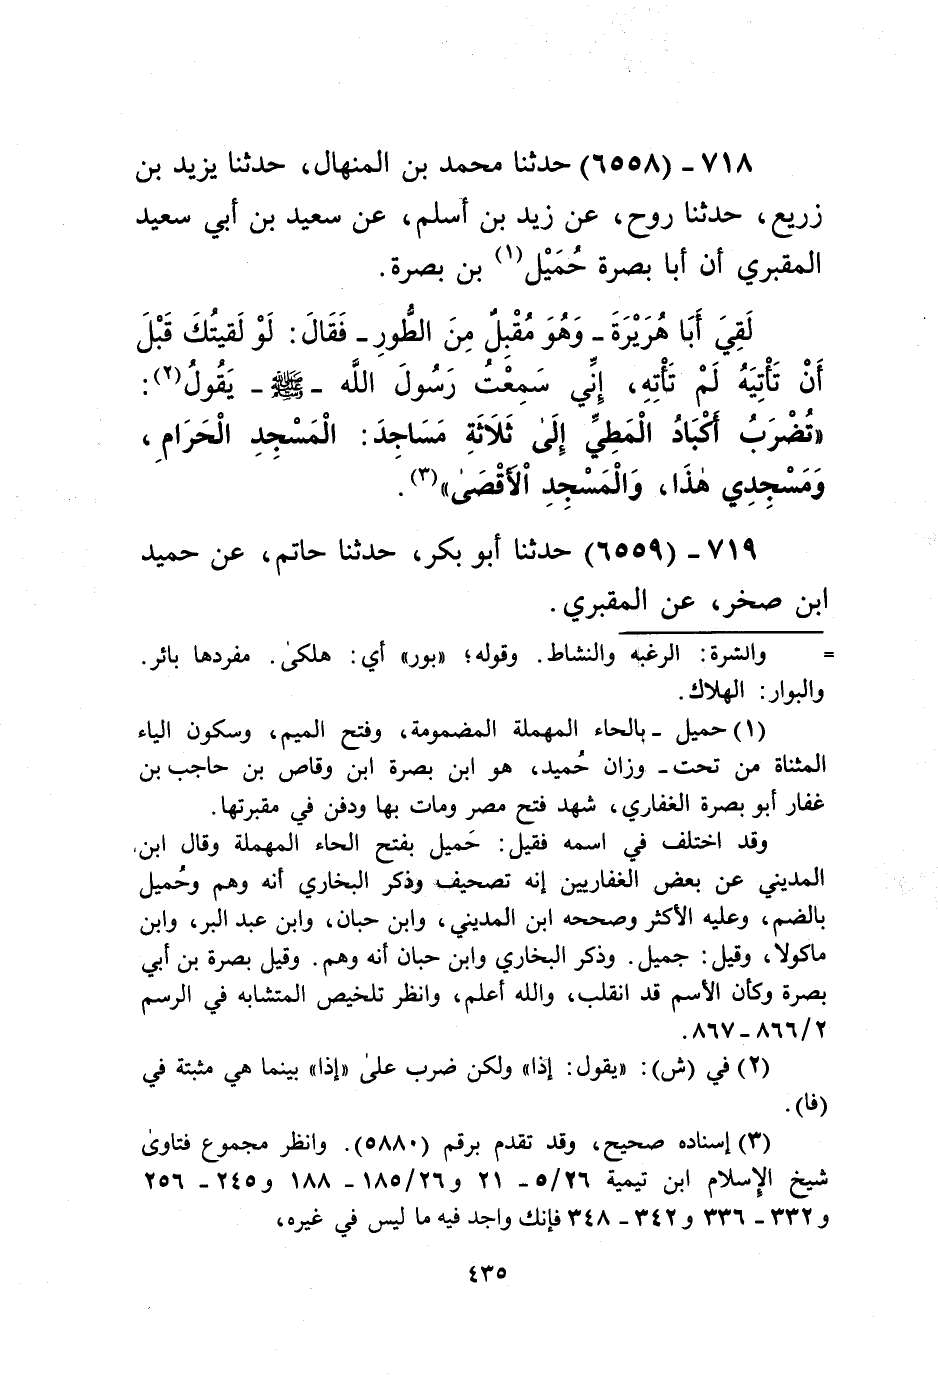 ٧١٨ - (٦٥٥٨) حدثنا محمد بن المنهال، حدثنا يزيد بن
زريع، حدثنا روح، عن زيد بن أسلم، عن سعيد بن أبي سعيد
المقبري أن أبا بصرة حُمَيْل(١) بن بصرة.
لَقِيَ أَبَا هُرَيْرَةَ - وَهُوَ مُقْبِلٌ مِنَ الطُّورِ - فَقَالَ: لَوْ لَقيتُكَ قَبْلَ
أَنْ تَأْتِيَهُ لَمْ تَأْتِهِ، إِنِّي سَمِعْتُ رَسُولَ اللَّه - ﷺ - يَقُولُ(٢):
«تُضْرَبُ أَكْبَادُ الْمَطِيِّ إِلَىٰ ثَلَاثَةِ مَسَاجِدَ: الْمَسْجِدِ الْحَرَامِ،
وَمَسْجِدِي هٰذَا، وَالْمَسْجِدِ الْأَقْصَىٰ»(٣).
٧١٩ - (٦٥٥٩) حدثنا أبو بكر، حدثنا حاتم، عن حميد
ابن صخر، عن المقبري.
= والشرة: الرغبه والنشاط. وقوله؛ «بور» أي: هلكىٰ. مفردها بائر.
والبوار: الهلاك.
(١) حميل - بالحاء المهملة المضمومة، وفتح الميم، وسكون الياء
المثناة من تحت - وزان حُميد، هو ابن بصرة ابن وقاص بن حاجب بن
غفار أبو بصرة الغفاري، شهد فتح مصر ومات بها ودفن في مقبرتها.
وقد اختلف في اسمه فقيل: حَميل بفتح الحاء المهملة وقال ابن
المديني عن بعض الغفاريين إنه تصحيف وذكر البخاري أنه وهم وحُميل
بالضم، وعليه الأكثر وصححه ابن المديني، وابن حبان، وابن عبد البر، وابن
ماكولا، وقيل: جميل. وذكر البخاري وابن حبان أنه وهم. وقيل بصرة بن أبي
بصرة وكأن الأسم قد انقلب، والله أعلم، وانظر تلخيص المتشابه في الرسم
٨٦٦/٢ - ٨٦٧.
(٢) في (ش): «يقول: إذا» ولكن ضرب علىٰ «إذا» بينما هي مثبتة في
(فا).
(٣) إسناده صحيح، وقد تقدم برقم (٥٨٨٠). وانظر مجموع فتاوىٰ
شيخ الإسلام ابن تيمية ٥/٢٦ - ٢١ و١٨٥/٢٦ - ١٨٨ و٢٤٥ - ٢٥٦
و٣٣٢ - ٣٣٦ و٣٤٢ - ٣٤٨ فإنك واجد فيه ما ليس في غيره،
٤٣٥